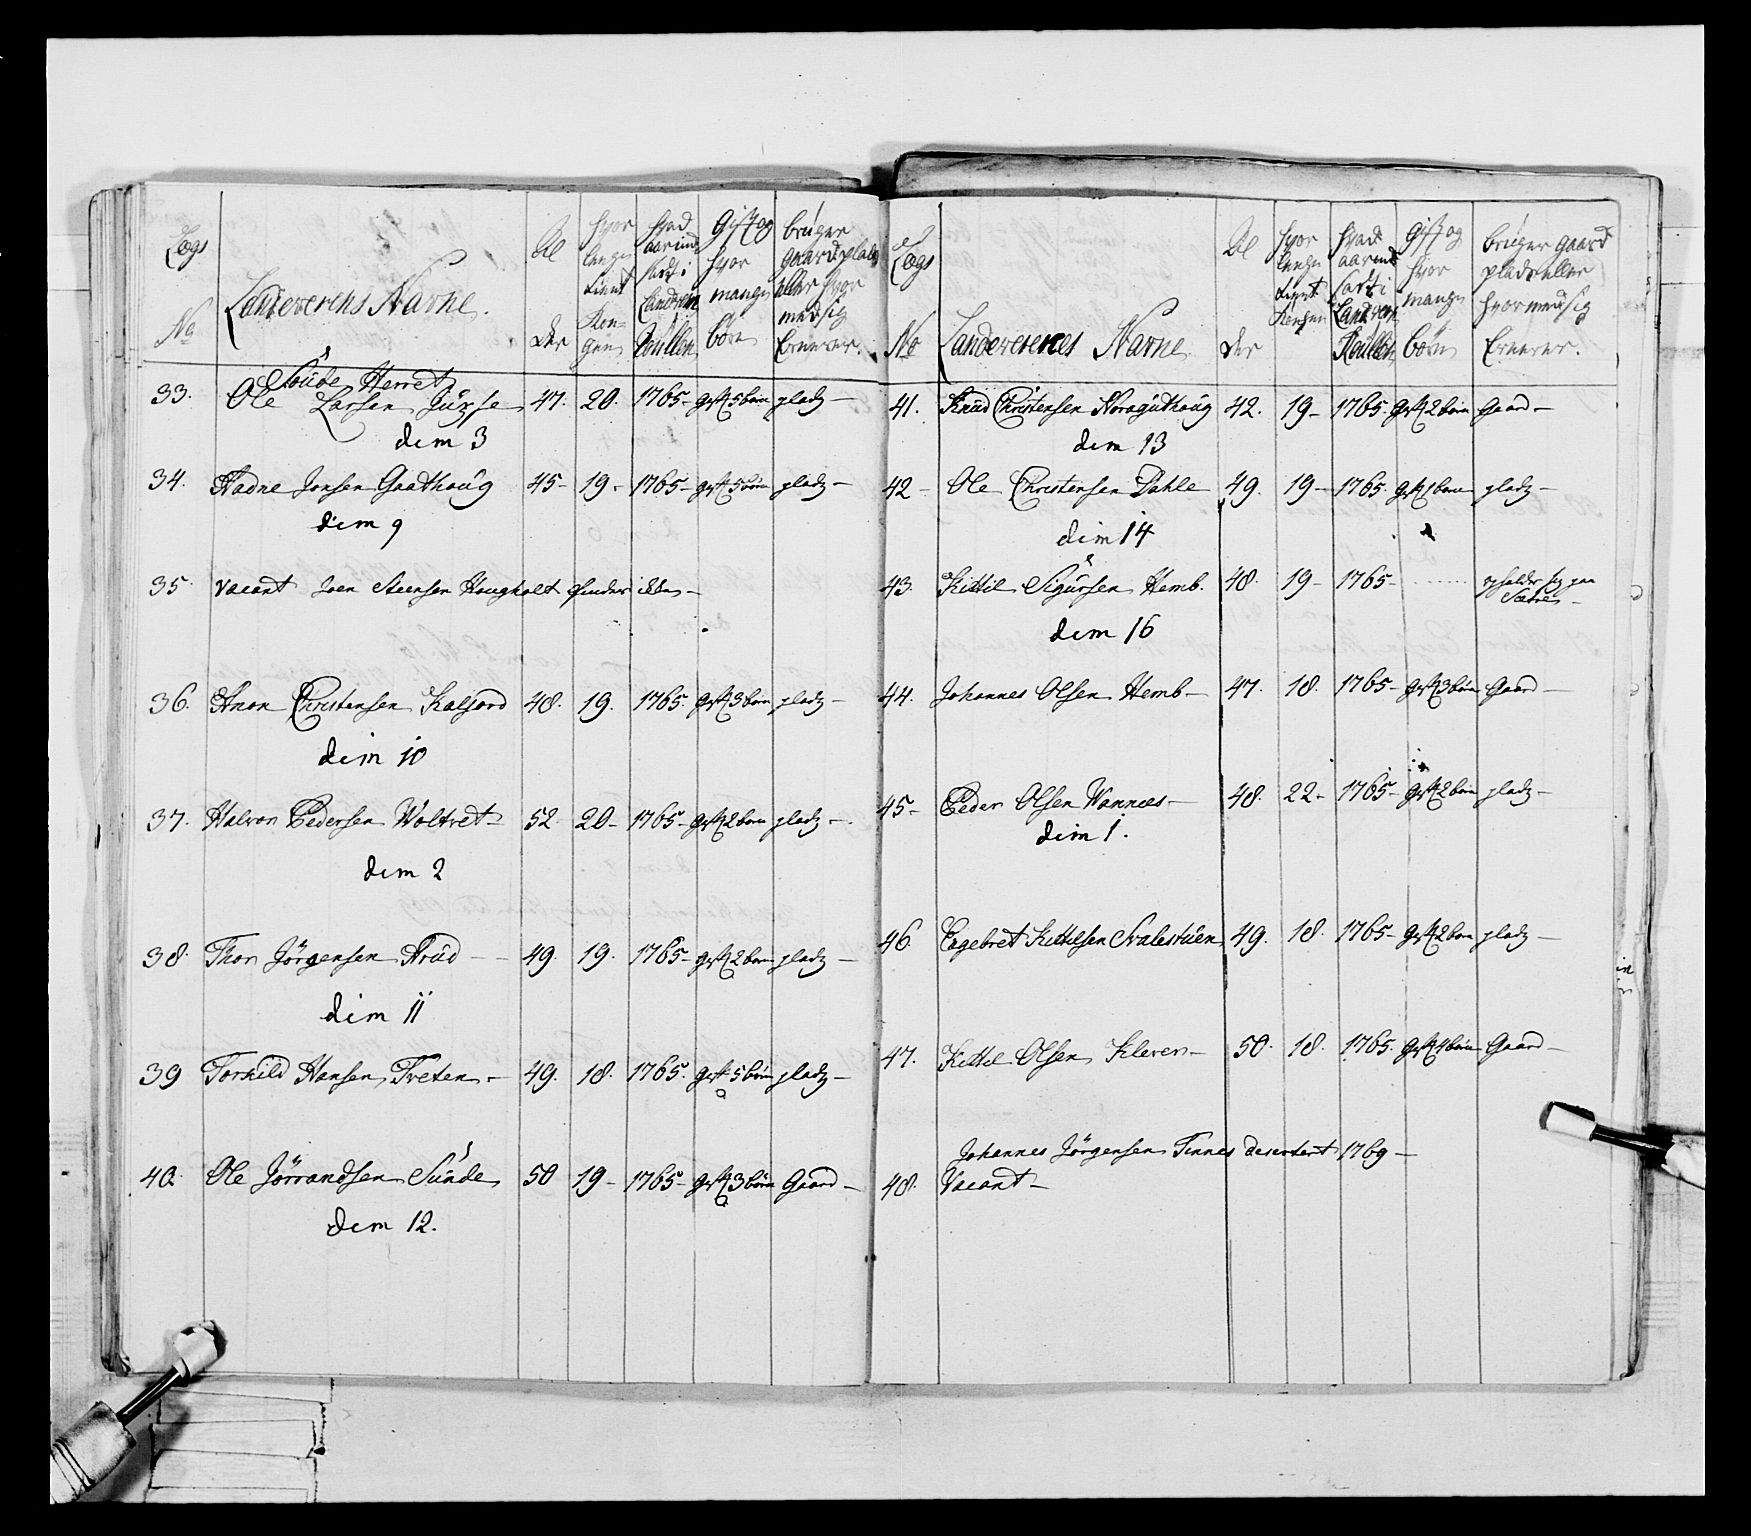 Legs No
Landeverens Navne.
Alder
hvor lenge tient Kongen
hvad aar ind sadt i Landvern Roullen
Gift og hvor mange börn
brüger gaard plads eller hvor med sig Ernerer.
Soude Herret
33. Ole Larsen Juxse 47. 20. 1765 - gift 5 børn pladz -
dim 3
34. Aadne Jonsen Gaathoug 45 - 19 - 1765 - gift 5 børn pladz -
dim 9
35. Vacant Joen Steensen Hougholt findes ikke -
36. Anon Christensen Kalford 48. 19. 1765. gift 3 børn pladz -
dim 10
37. Halvor Pedersen Woltvet 52 20 - 1765 - gift 2 børn pladz -
dim 2
38. Thor Jörgensen Aarud - 49 19. 1765 - gift 2 børn pladz -
dim 11
39 Torkild Hansen Tveten - 49. 18. 1765. gift 5 börn pladz -
40. Ole Jörrandsen Sünde 50 19 - 1765 - gift 3 börn Gaard -
dim 12.
Legs No
Landeverenes Navne
Alder
hvor lenge tient Kongen
hvad aar ind sadt i Landvern Roullen
Gift og hvor mange börn
brüger gaard plads eller hvor med sig Ernerer.
41. Knud Christensen Noragüthoug 42. 19 - 1765. gift 2 börn Gaard -
dim 13
42 - Ole Christensen Dahle 49. 19 - 1765. gift 1 barn pladz -
dim 14
43. Kittil Sigursen Hemb. 48. 19 - 1765 - opholder sig paa Sætre -
dim 16
44. Johannes Olsen Hemb - 47. 18. 1765 - gift 3 börn Gaard -
45 - Peder Olsen Wannes - 48. 22 - 1765 - gift 2 børn pladz -
dim 1.
46 Engebret Kittilsen Svalestuen 49. 18. 1765 - gift 2 børn pladz -
47. Kittil Olsen Kleven - 50. 18. 1765. gift 4 børn Gaard -
Johannes Jörgensen Tinnes desertert 1769 -
48. Vacant -